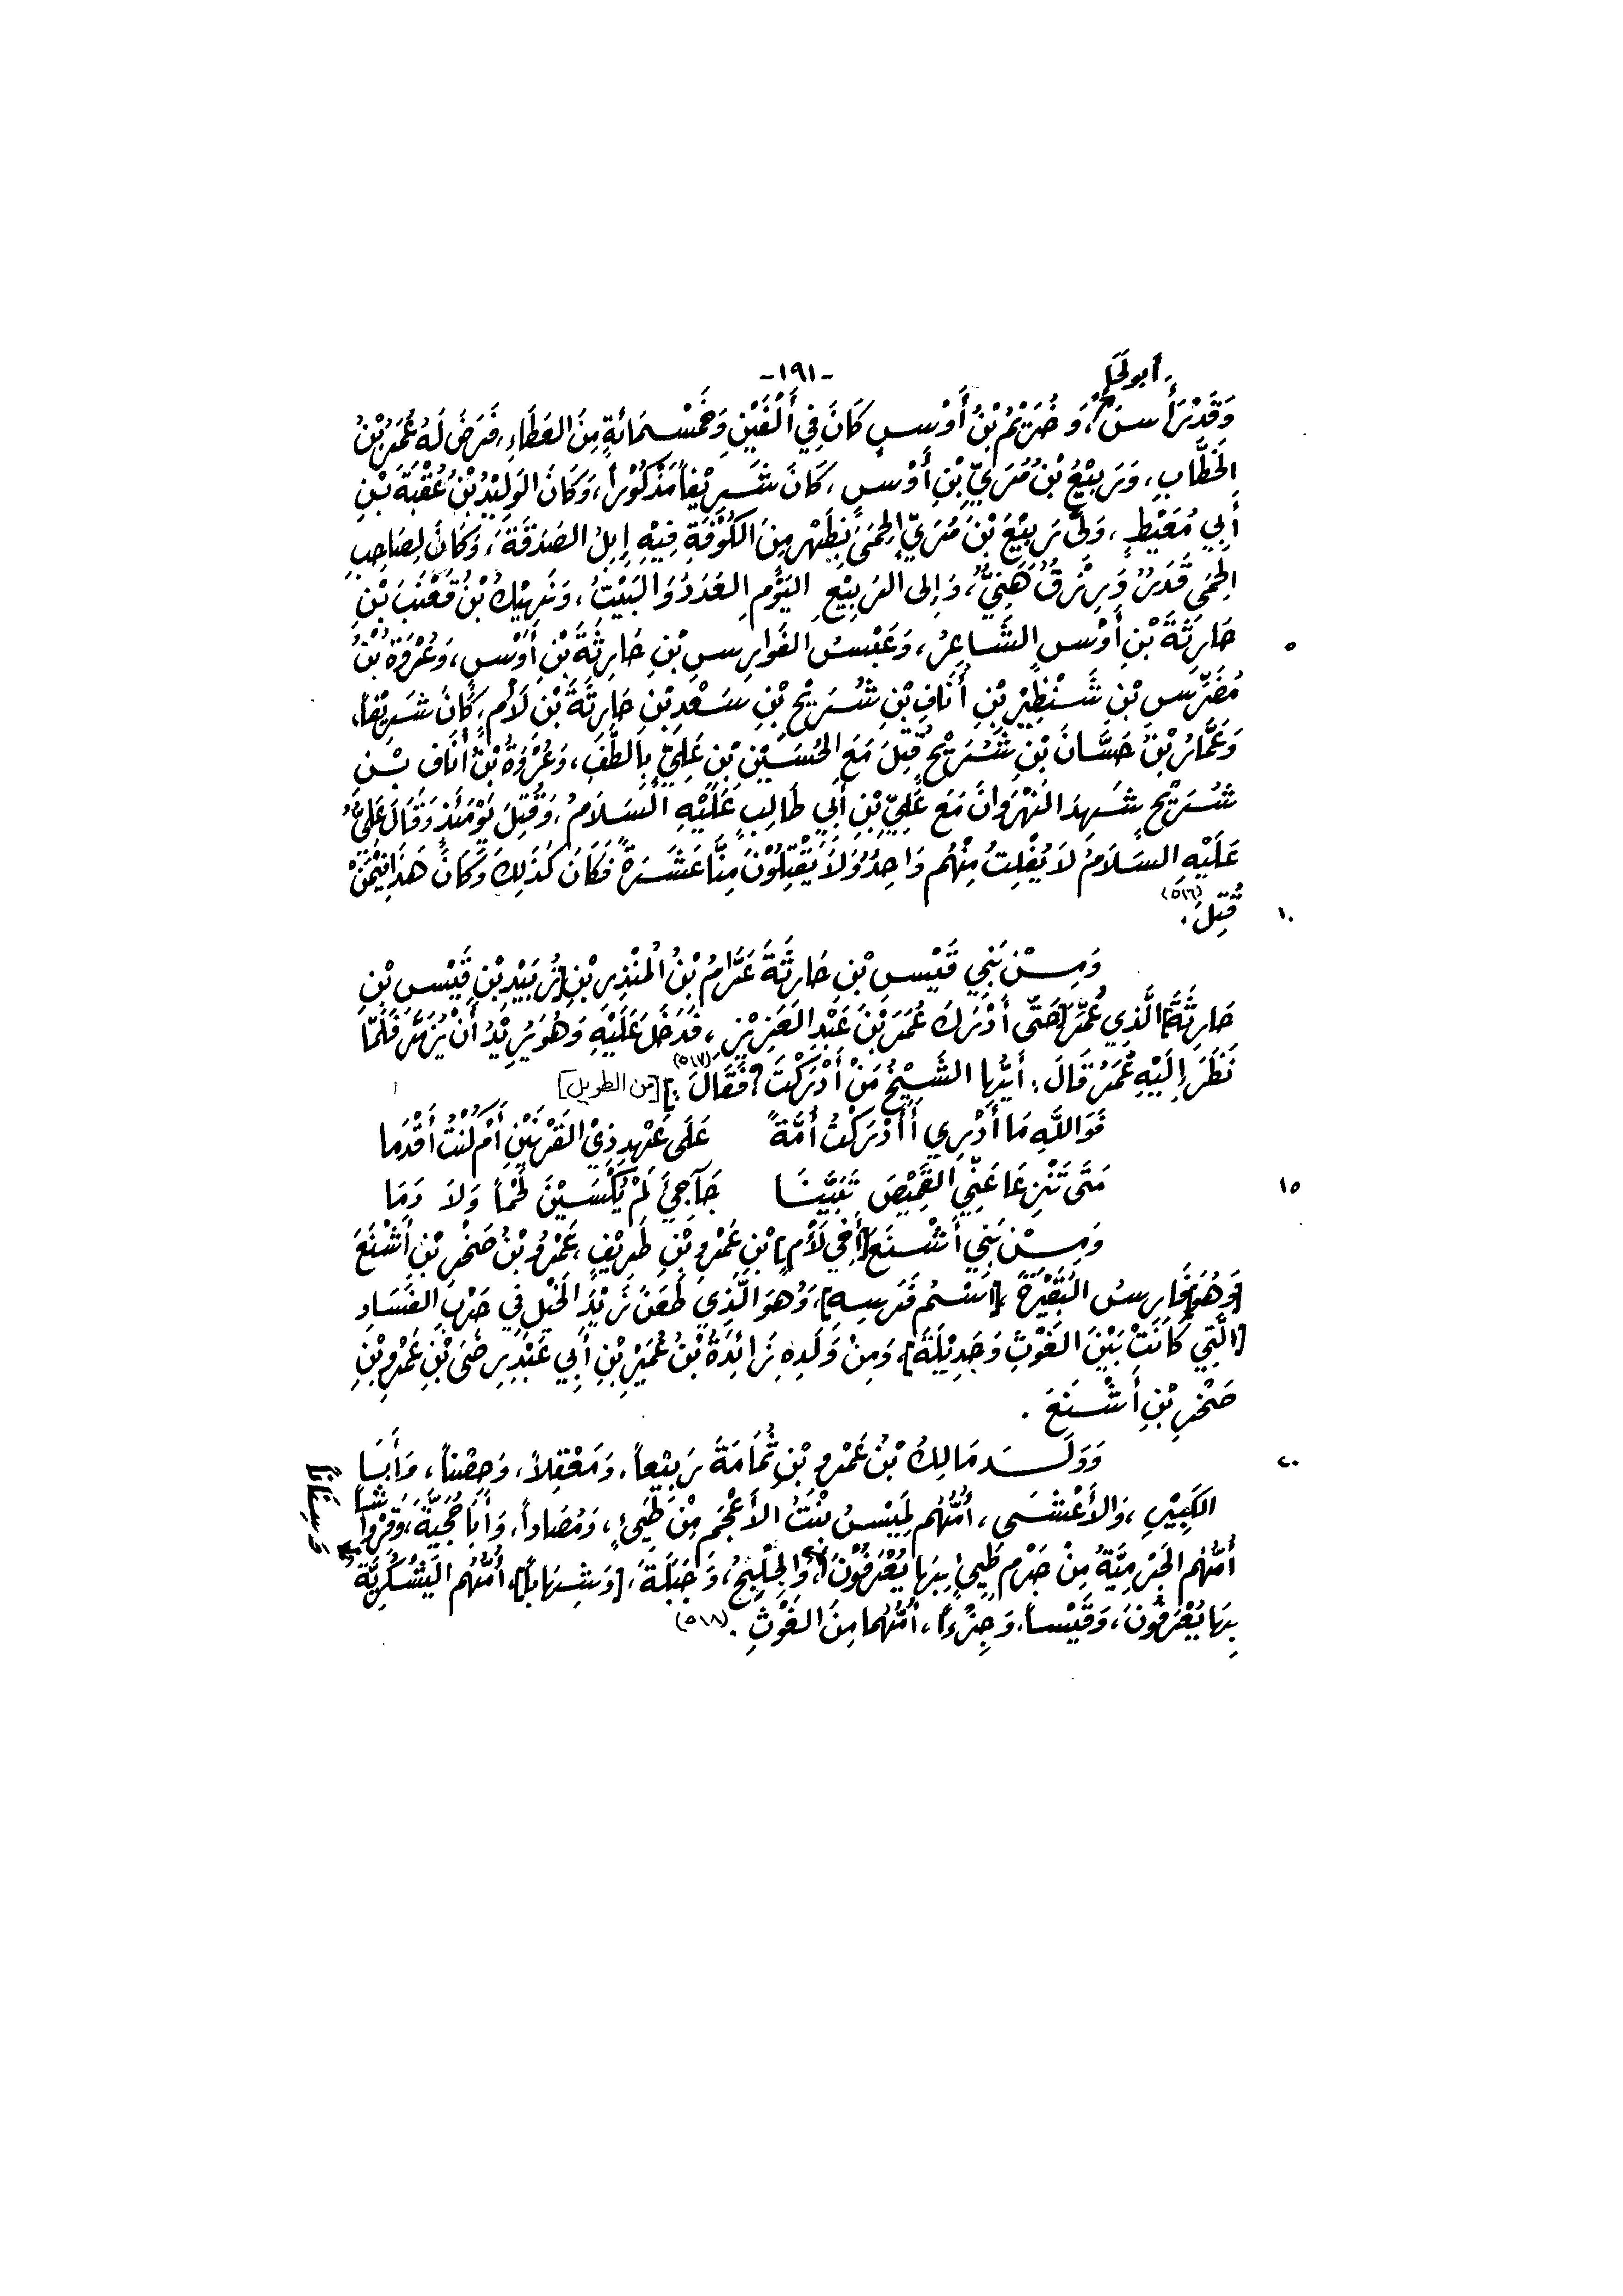 أبو لَجَأٍ
-١٩١-
وَقَدْ رَأَسَ، وَخُرَيْمُ بْنُ أَوْسٍ كَانَ فِي أَلْفَيْنِ وَخَمْسِمَائَةٍ مِنَ العَطَاءِ، فَرَضَ لَهُ عُمَرُ بْنُ
الخَطَّابِ، وَرَبِيْعُ بْنُ مُرَيِّ بْنِ أَوْسٍ، كَانَ شَرِيْفاً مَذْكُوْراً، وَكَانَ الوَلِيْدُ بْنُ عُقْبَةَ بْنِ
أَبِي مُعَيْطٍ، وَلَّى رَبِيْعَ بْنَ مُرَيِّ الحِمَى بِظَهْرِ مِنَ الكُوْفَةِ فِيْهِ إِبِلُ الصَّدَقَةَ، وَكَانَ لِصَاحِبِ
الحِمَى قَدْرٌ وَرِزْقٌ هَنِيٌّ، وَإِلى الرَبِيْعِ اليَوْمِ العَدَدُ وَالبَيْتُ، وَنَهِيْكُ بْنُ قَعْنَبَ بْنِ
حَارِثَةَ بْنِ أَوْسٍ الشَّاعِرُ، وَعَبْسُ الفَوَارِسِ بْنِ حَارِثَةَ بْنِ أَوْسٍ، وَعُرْوَةُ بْنُ
٥
مُضَرِّسِ بْنِ شَنْظِيْرِ بْنِ أُنَافِ بْنِ شُرَيْحِ بْنِ سَعْدِ بْنِ حَارِثَةَ بْنِ لَأْمٍ، كَانَ شَرِيْفاً،
وَعَمَّارُ بْنُ حَسَّانَ بْنِ شُرَيْحٍ قُتِلَ مَعَ الحُسَيْنِ بْنِ عَلِيٍّ بِالطَّفِّ، وَعُرْوَةُ بْنُ أُنَافِ بْنِ
شُرَيْحٍ شَهِدَ النَّهْرَوَانَ مَعَ عَلِيِّ بْنِ أَبِي طَالِبٍ عَلَيْهِ السَّلَامُ، وَقُتِلَ يَوْمَئِذٍ وَقَالَ عَلِيٌّ
عَلَيْهِ السَّلَامُ لَا يُفْلِتُ مِنْهُم وَاحِدٌ وَلَا يَقْتُلُوْنَ مِنَّا عَشَرَةً فَكَانَ كَذَلِكَ وَكَانَ هَذَا فِيْمَنْ
قُتِلَ. (٥١٦)
١٠
وَمِنْ بَنِي قَيْسِ بْنِ حَارِثَةَ عَرَّامُ بْنُ المُنْذِرِ بْنِ [زُبَيْدِ بْنِ قَيْسِ بْنِ
حَارِثَةَ] الَّذِي عُمِّرَ [حَتَّى أَدْرَكَ عُمَرَ بْنَ عَبْدِ العَزِيْزِ، فَدَخَلَ عَلَيْهِ وَهُوَ يُرِيْدُ أَنْ يُزَمَّنَ فَلَمَّا
نَظَرَ إِلَيْهِ عُمَرُ قَالَ: أَيُّهَا الشَّيْخُ مَنْ أَدْرَكْتَ؟ فَقَالَ:] (٥١٧) [من الطويل]
فَوَاللَّهِ مَا أَدْرِي أَأَدْرَكْتُ أُمَّةً عَلَى عَهْدِ ذِيْ القَرْنَيْنِ أَمْ كُنْتُ أَقْدَمَا
مَتَى تَنْزِعَا عَنِّي القَمِيْصَ تَبَيَّنَا جَآجِئَ لَمْ يُكْسَيْنَ لَحْماً وَلاَ دَمَا
١٥
وَمِنْ بَنِي أَشْنَعَ [أَخِي لَأْمٍ] بْنِ عَمْرِو بْنِ طَرِيْفٍ، عَمْرُو بْنُ صَخْرِ بْنِ أَشْنَعَ
[وَهُوَ] فَارِسُ البُقَيْرَةَ [اسْمُ فَرَسِهِ]، وَهُوَ الَّذِي طَعَنَ زَيْدَ الخَيْلِ فِي حَرْبِ الفَسَادِ
[الَّتِي كَانَتْ بَيْنَ الغَوْثِ وَجَدِيْلَةَ]، وَمِنْ وَلَدِهِ زَائِدَةُ بْنُ عُمَيْرِ بْنِ أَبِي عَبْدِ رِضَى بْنِ عَمْرِو بْنِ
صَخْرِ بْنِ أَشْنَعَ.
وَوَلَدَ مَالِكُ بْنُ عَمْرِو بْنِ ثُمَامَةَ رَبِيْعاً، وَمَعْقِلاً، وَحِصْناً، وَأَبَا
٢٠
الكَبِيْرِ، وَالأَعْشَى، أُمُّهُم لَمِيْسُ بِنْتُ الأَعْجَمِ مِنْ طَيِّئٍ، وَمُصَاداً، وَأَبَا حُجَيَّةَ، وَقِرْوَاشاً
وَسِنَاناً
أُمُّهُم الجَرْمِيَّةُ مِنْ جَرْمِ طَيِّئٍ بِهَا يُعْرَفُوْنَ، وَالجُلَيْحُ، وَجَبَلَةَ، [وَشِهَاباً]، أُمُّهُم اليَشْكُرِيَّةُ
بِهَا يُعْرَفُونَ، وَقَيْساً، وَجِزْءاً، أُمُّهُما مِنَ الغَوْثِ. (٥١٨)